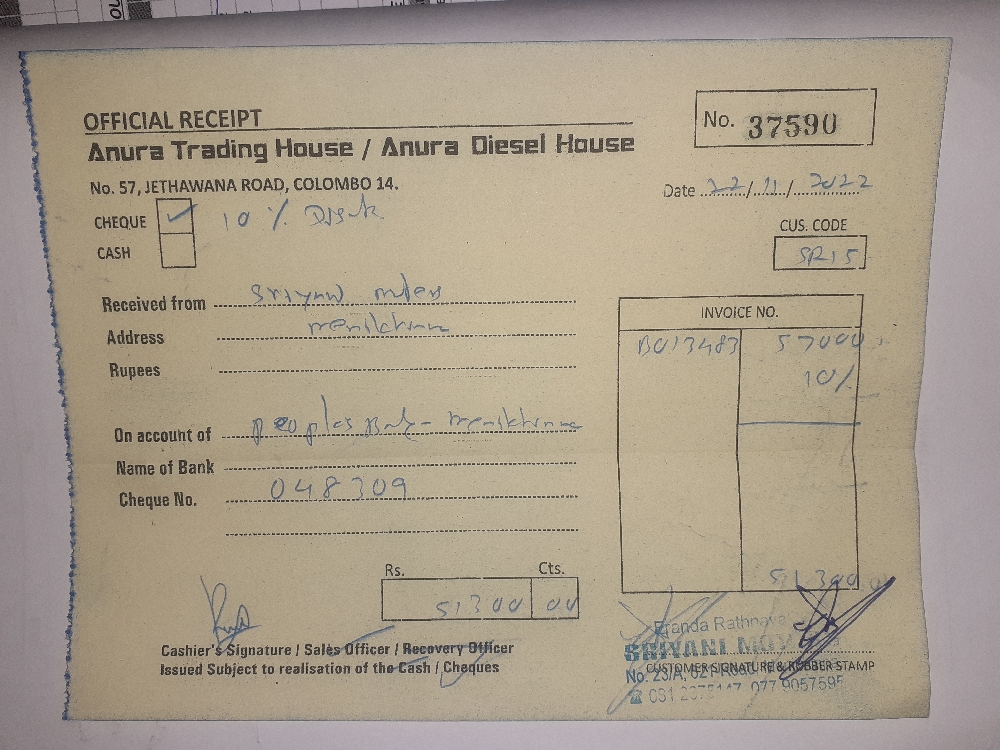 OFFICIAL RECEIPT
No. 37590
Anura Trading House / Anura Diesel House
No. 57, JETHAWANA ROAD, COLOMBO 14.
Date 22/11/2022
CHEQUE ✓ 10 %
CASH
CUS. CODE
SR15
Received from
Address
Rupees
INVOICE NO.
B013483 57000
10%
On account of peoples Bank -
Name of Bank
Cheque No. 048309
51300 00
Rs. Cts.
51300 00
Eranda
SRIYANI MO
Cashier's Signature / Sales Officer / Recovery Officer
Issued Subject to realisation of the Cash / Cheques
CUSTOMER SIGNATURE & RUBBER STAMP
No. 23/A,
077 9057595